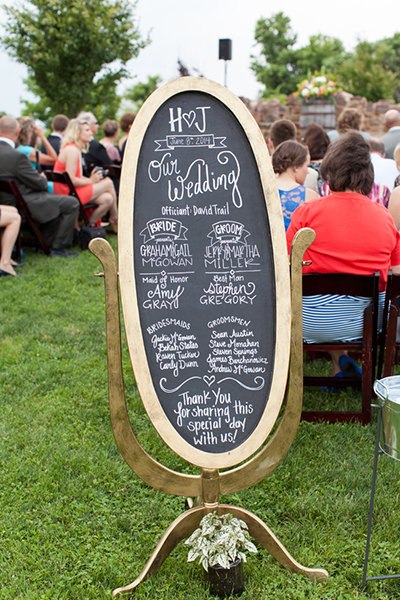 H♡J
June 8th 2014
Our
Wedding
Officiant: David Trail
BRIDE
GRAHAM GAIL
McGOWAN
GROOM
JERRY MARTHA
MILLER
Maid of Honor
Amy
GRAY
Best Man
Stephen
GREGORY
BRIDESMAIDS
Jackie McGowan
Bekah States
Raven Tucker
Candy Dunn
GROOMSMEN
Sean Austin
Steve Monahan
Steven Springs
James Banchanowicz
Andrew McGowan
Thank You
for sharing this
special day
with us!